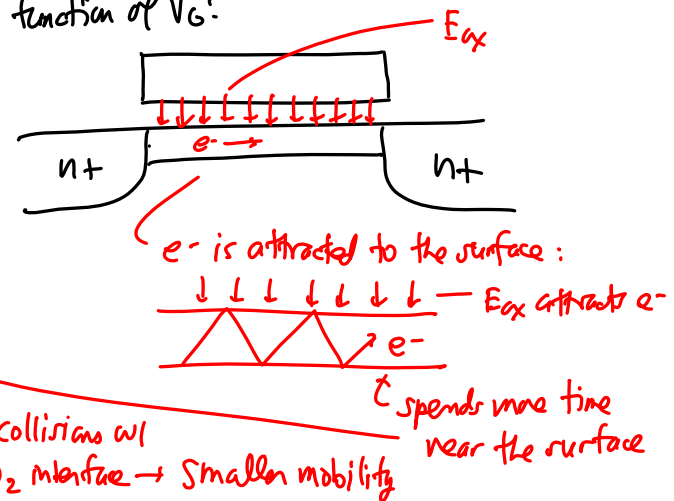 function of VG:
Eox
e- →
n+
n+
e- is attracted to the surface:
Eox attracts e-
e-
spends more time
near the surface
collisions w/
2 interface → smaller mobility